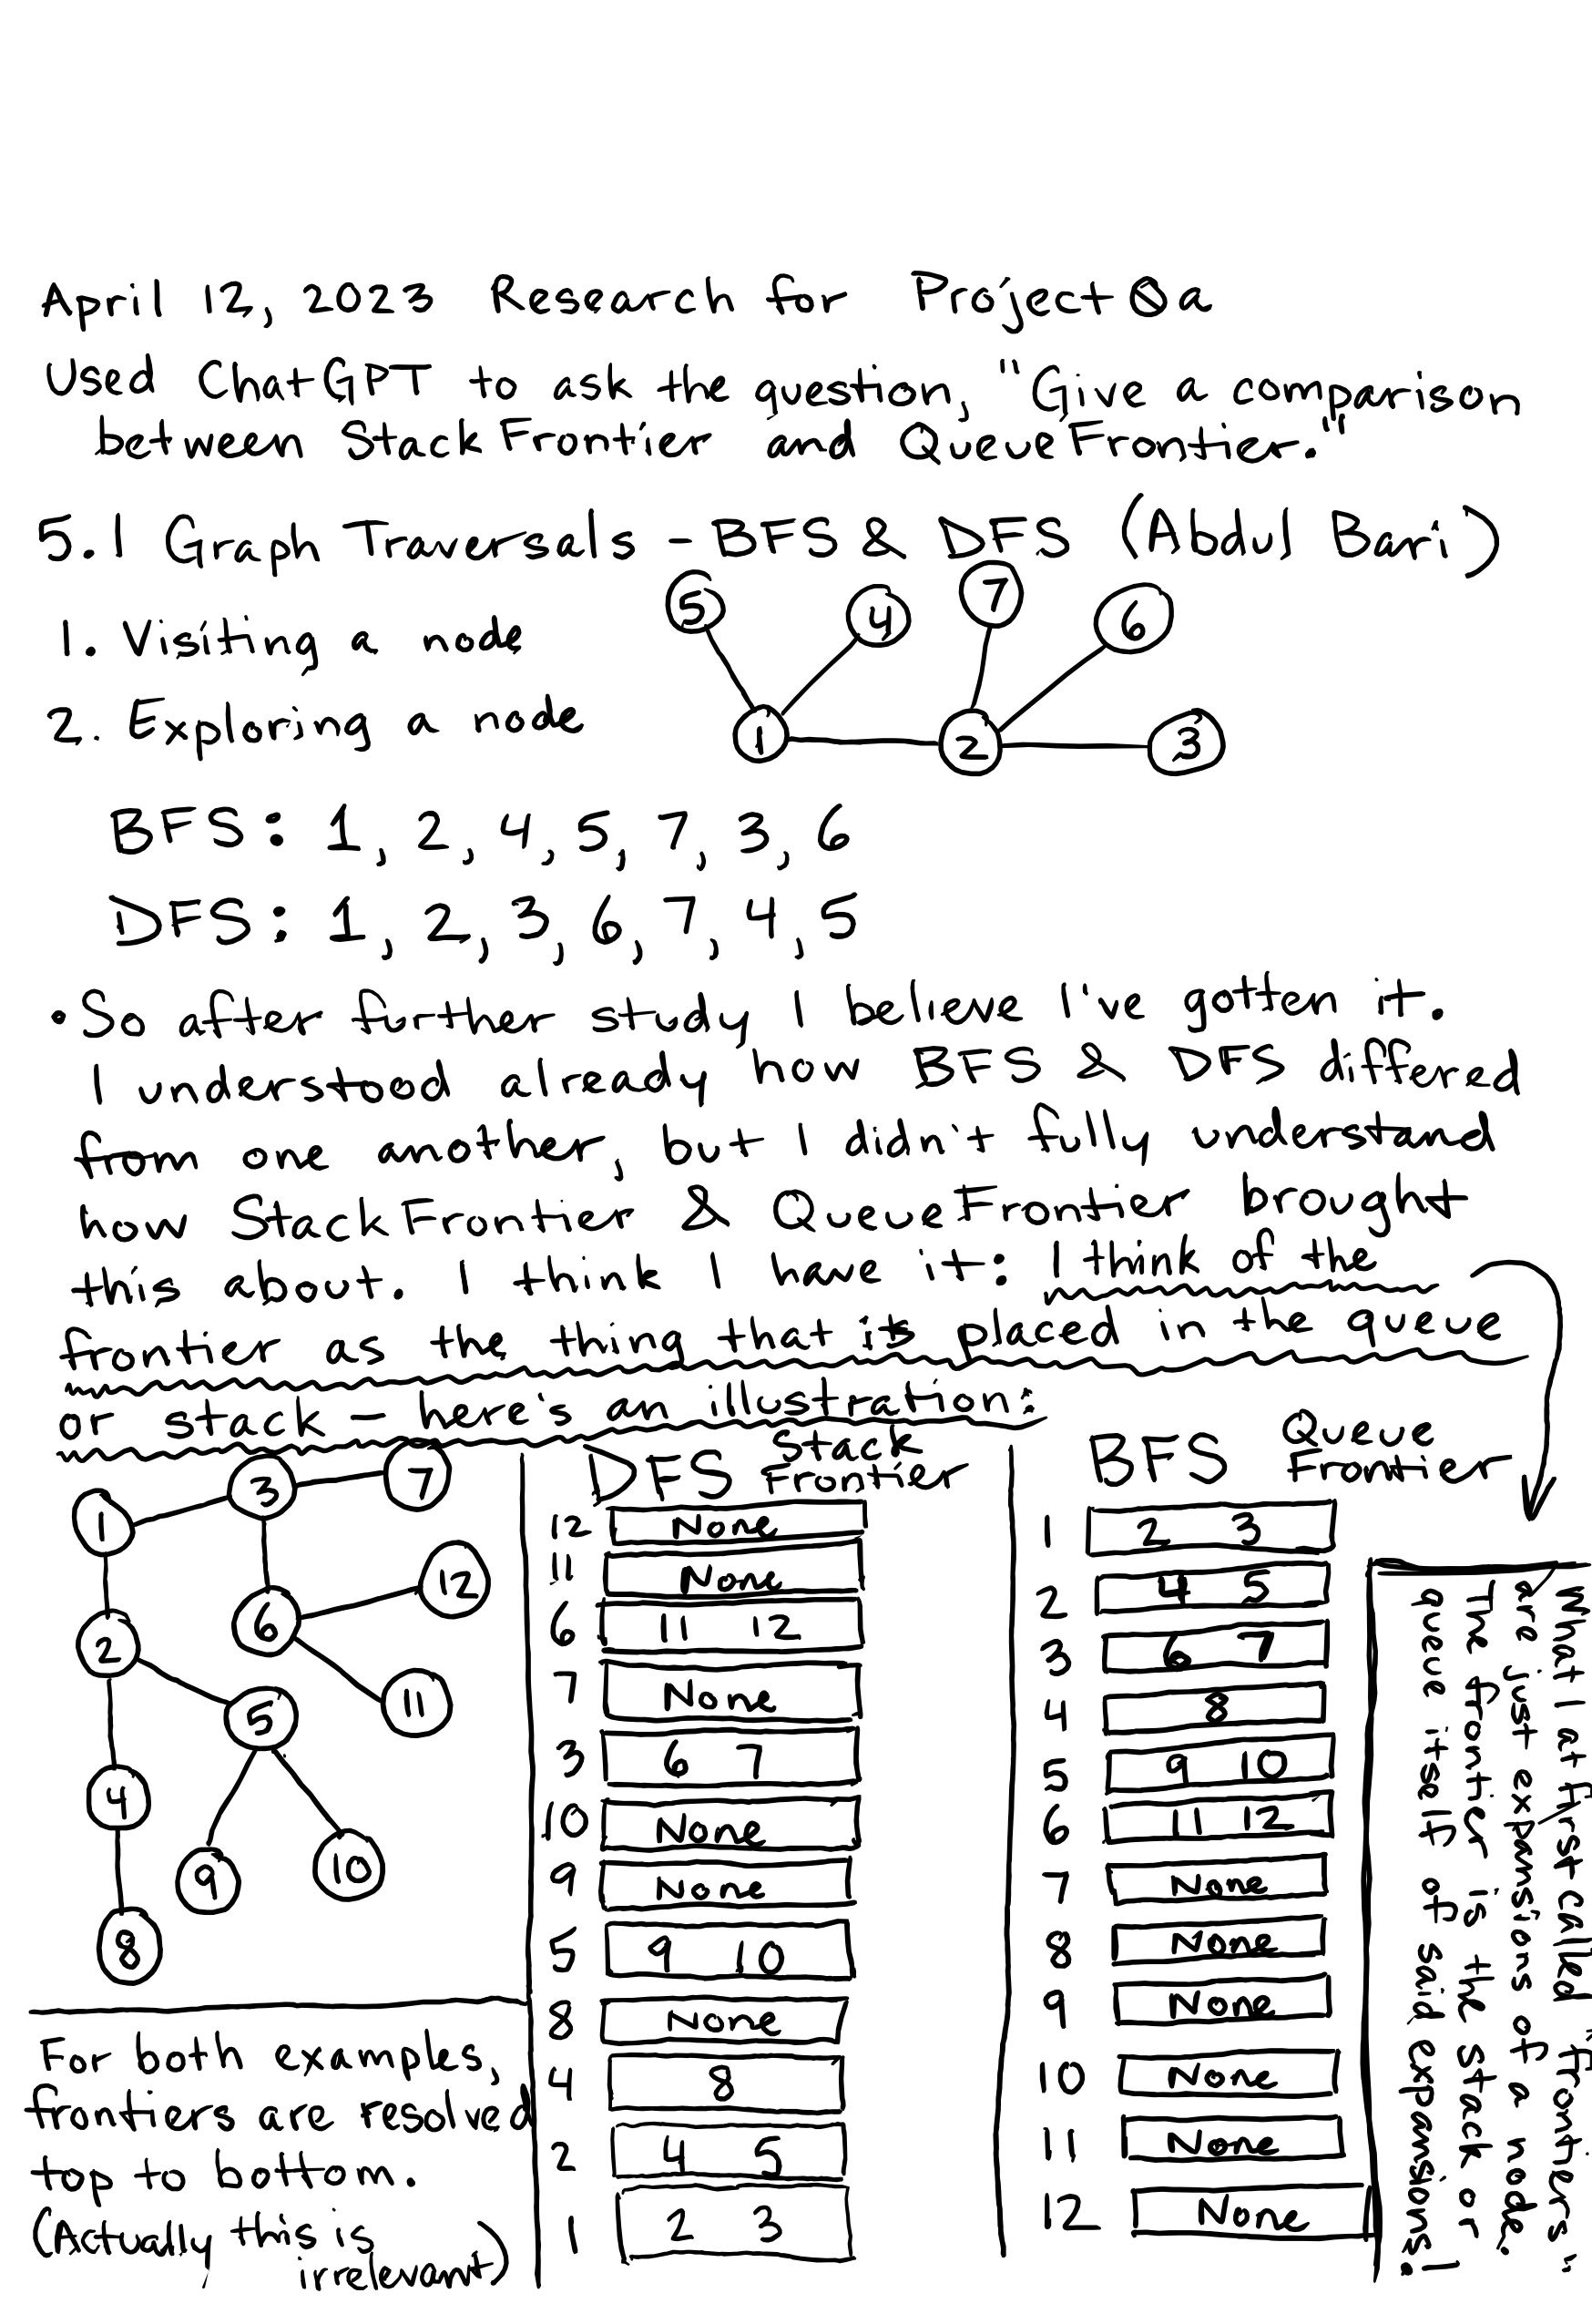 April 12, 2023 Research for Project 0a
Used ChatGPT to ask the question, "Give a comparison
between StackFrontier and QueueFrontier."
5.1 Graph Traversals - BFS & DFS (Abdul Bari)
1. Visiting a node
2. Exploring a node
5 4 7 6
1 2 3
BFS: 1, 2, 4, 5, 7, 3, 6
DFS: 1, 2, 3, 6, 7, 4, 5
• So after further study I believe I've gotten it.
I understood already how BFS & DFS differed
from one another, but I didn't fully understand
how StackFrontier & QueueFrontier brought
this about. I think I have it: I think of the
frontier as the thing that is placed in the queue
or stack – here's an illustration:
1 3 7
2 6 12
5 11
4
9 10
8
For both examples,
frontiers are resolved
top to bottom.
(Actually this is
irrelevant)
DFS Stack
Frontier
12 None
11 None
6 11 12
7 None
3 6 7
10 None
9 None
5 9 10
8 None
4 8
2 4 5
1 2 3
BFS Queue
Frontier
1 2 3
2 4 5
3 6 7
4 8
5 9 10
6 11 12
7 None
8 None
9 None
10 None
11 None
12 None
What I at first called "frontiers"
are just expansions of a node.
The frontier is the stack or
queue itself of said expansions!